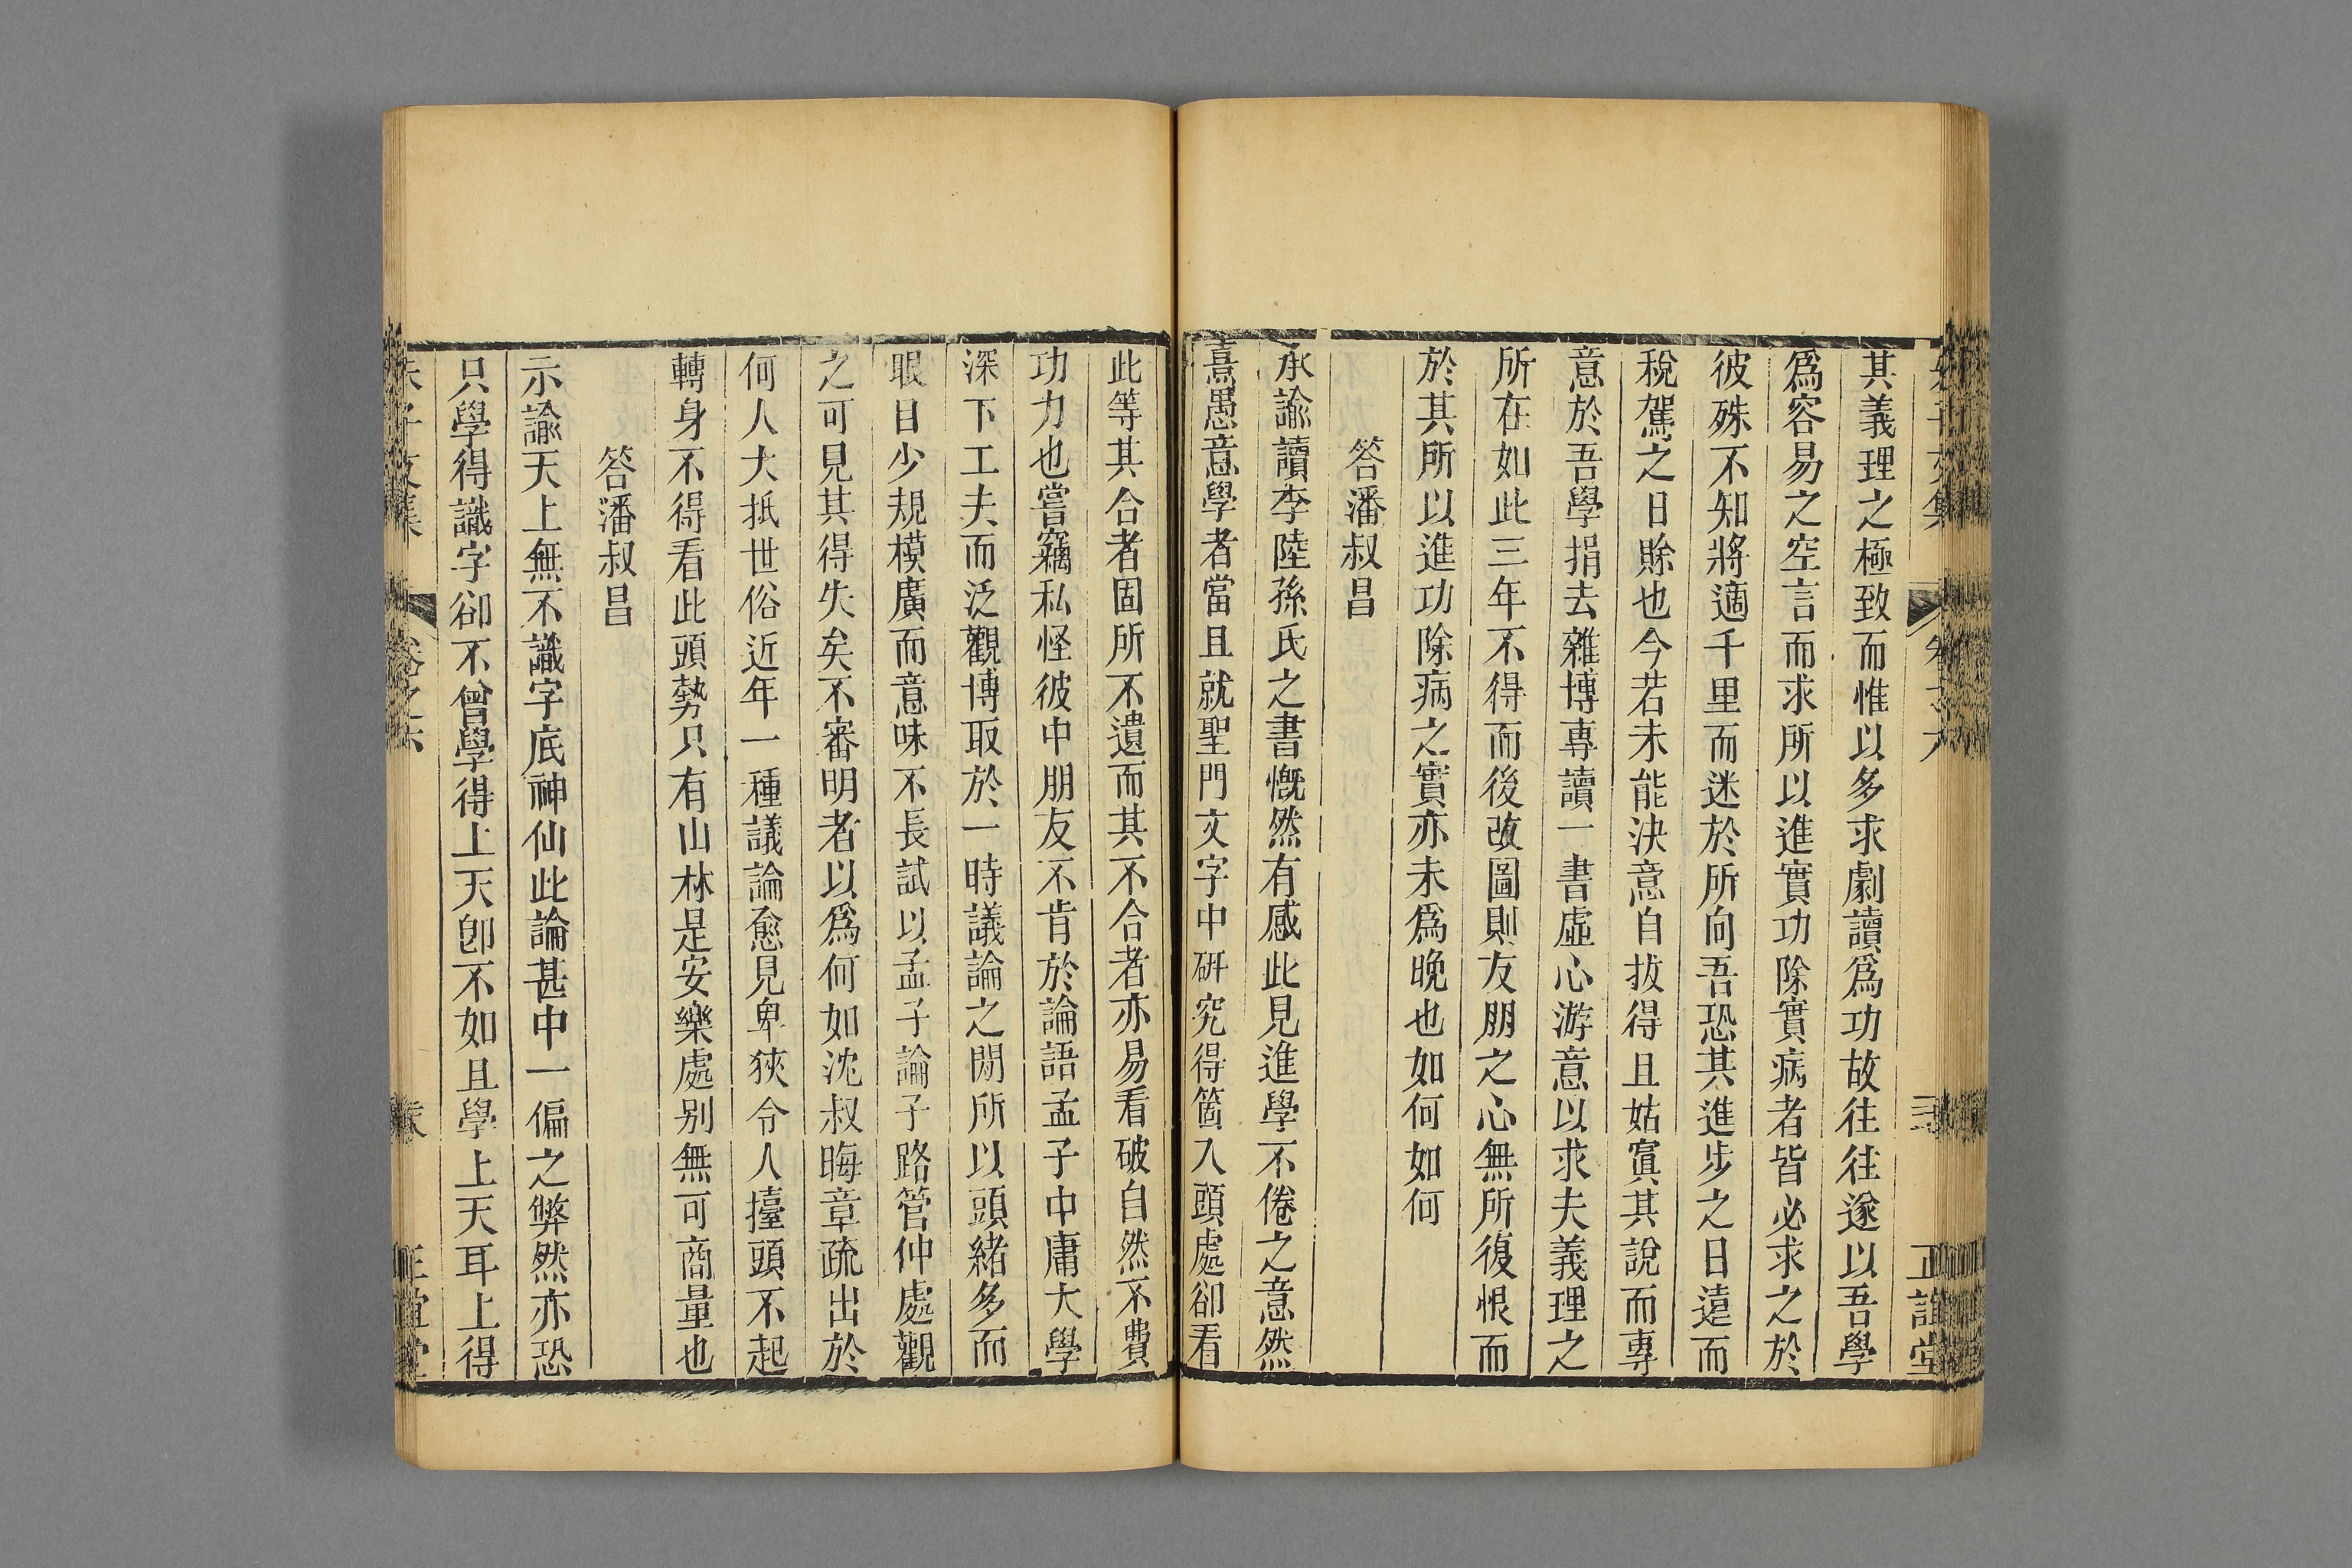 其義理之極致而惟以多求劇讀爲功故往往遂以吾學
爲容易之空言而求所以進實功除實病者皆必求之於
彼殊不知將適千里而迷於所向吾恐其進步之日遠而
稅駕之日賒也今若未能決意自拔得且姑寘其說而專
意於吾學捐去雜博專讀一書虛心游意以求夫義理之
所在如此三年不得而後改圖則友朋之心無所復恨而
於其所以進功除病之實亦未爲晚也如何如何
答潘叔昌
承諭讀李陸孫氏之書慨然有感此見進學不倦之意然
熹愚意學者當且就聖門文字中研究得箇入頭處卻看
此等其合者固所不遺而其不合者亦易看破自然不費
功力也嘗竊私怪彼中朋友不肯於論語孟子中庸大學
深下工夫而泛觀博取於一時議論之閒所以頭緒多而
眼目少規模廣而意味不長試以孟子論子路管仲處觀
之可見其得失矣不審明者以爲何如沈叔晦章疏出於
何人大抵世俗近年一種議論愈見卑狹令人擡頭不起
轉身不得看此頭勢只有山林是安樂處别無可商量也
答潘叔昌
示諭天上無不識字底神仙此論甚中一偏之弊然亦恐
只學得識字卻不曾學得上天卽不如且學上天耳上得